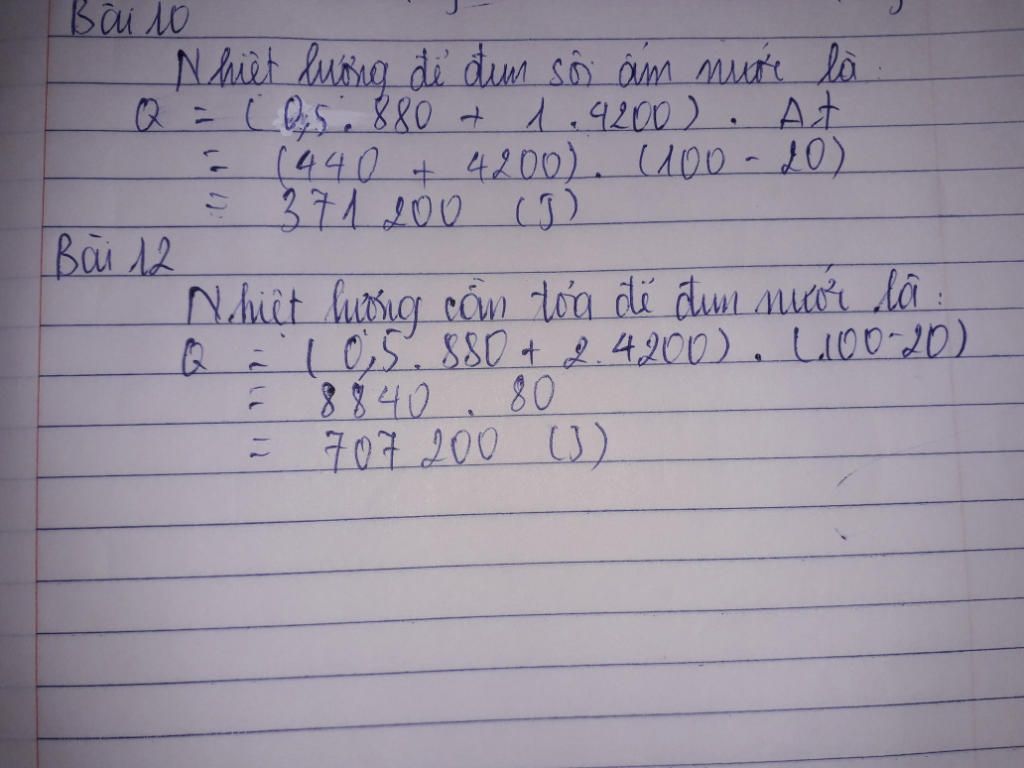 Bài 10
Nhiệt lượng để đun sôi ấm nước là :
Q = ( 0,5 . 880 + 1 . 4200 ) . Δt
= (440 + 4200) . (100 - 20)
= 371 200 (J)
Bài 12
Nhiệt lượng cần tỏa để đun nước là :
Q = ( 0,5 . 880 + 2 . 4200 ) . (100-20)
= 8840 . 80
= 707 200 (J)